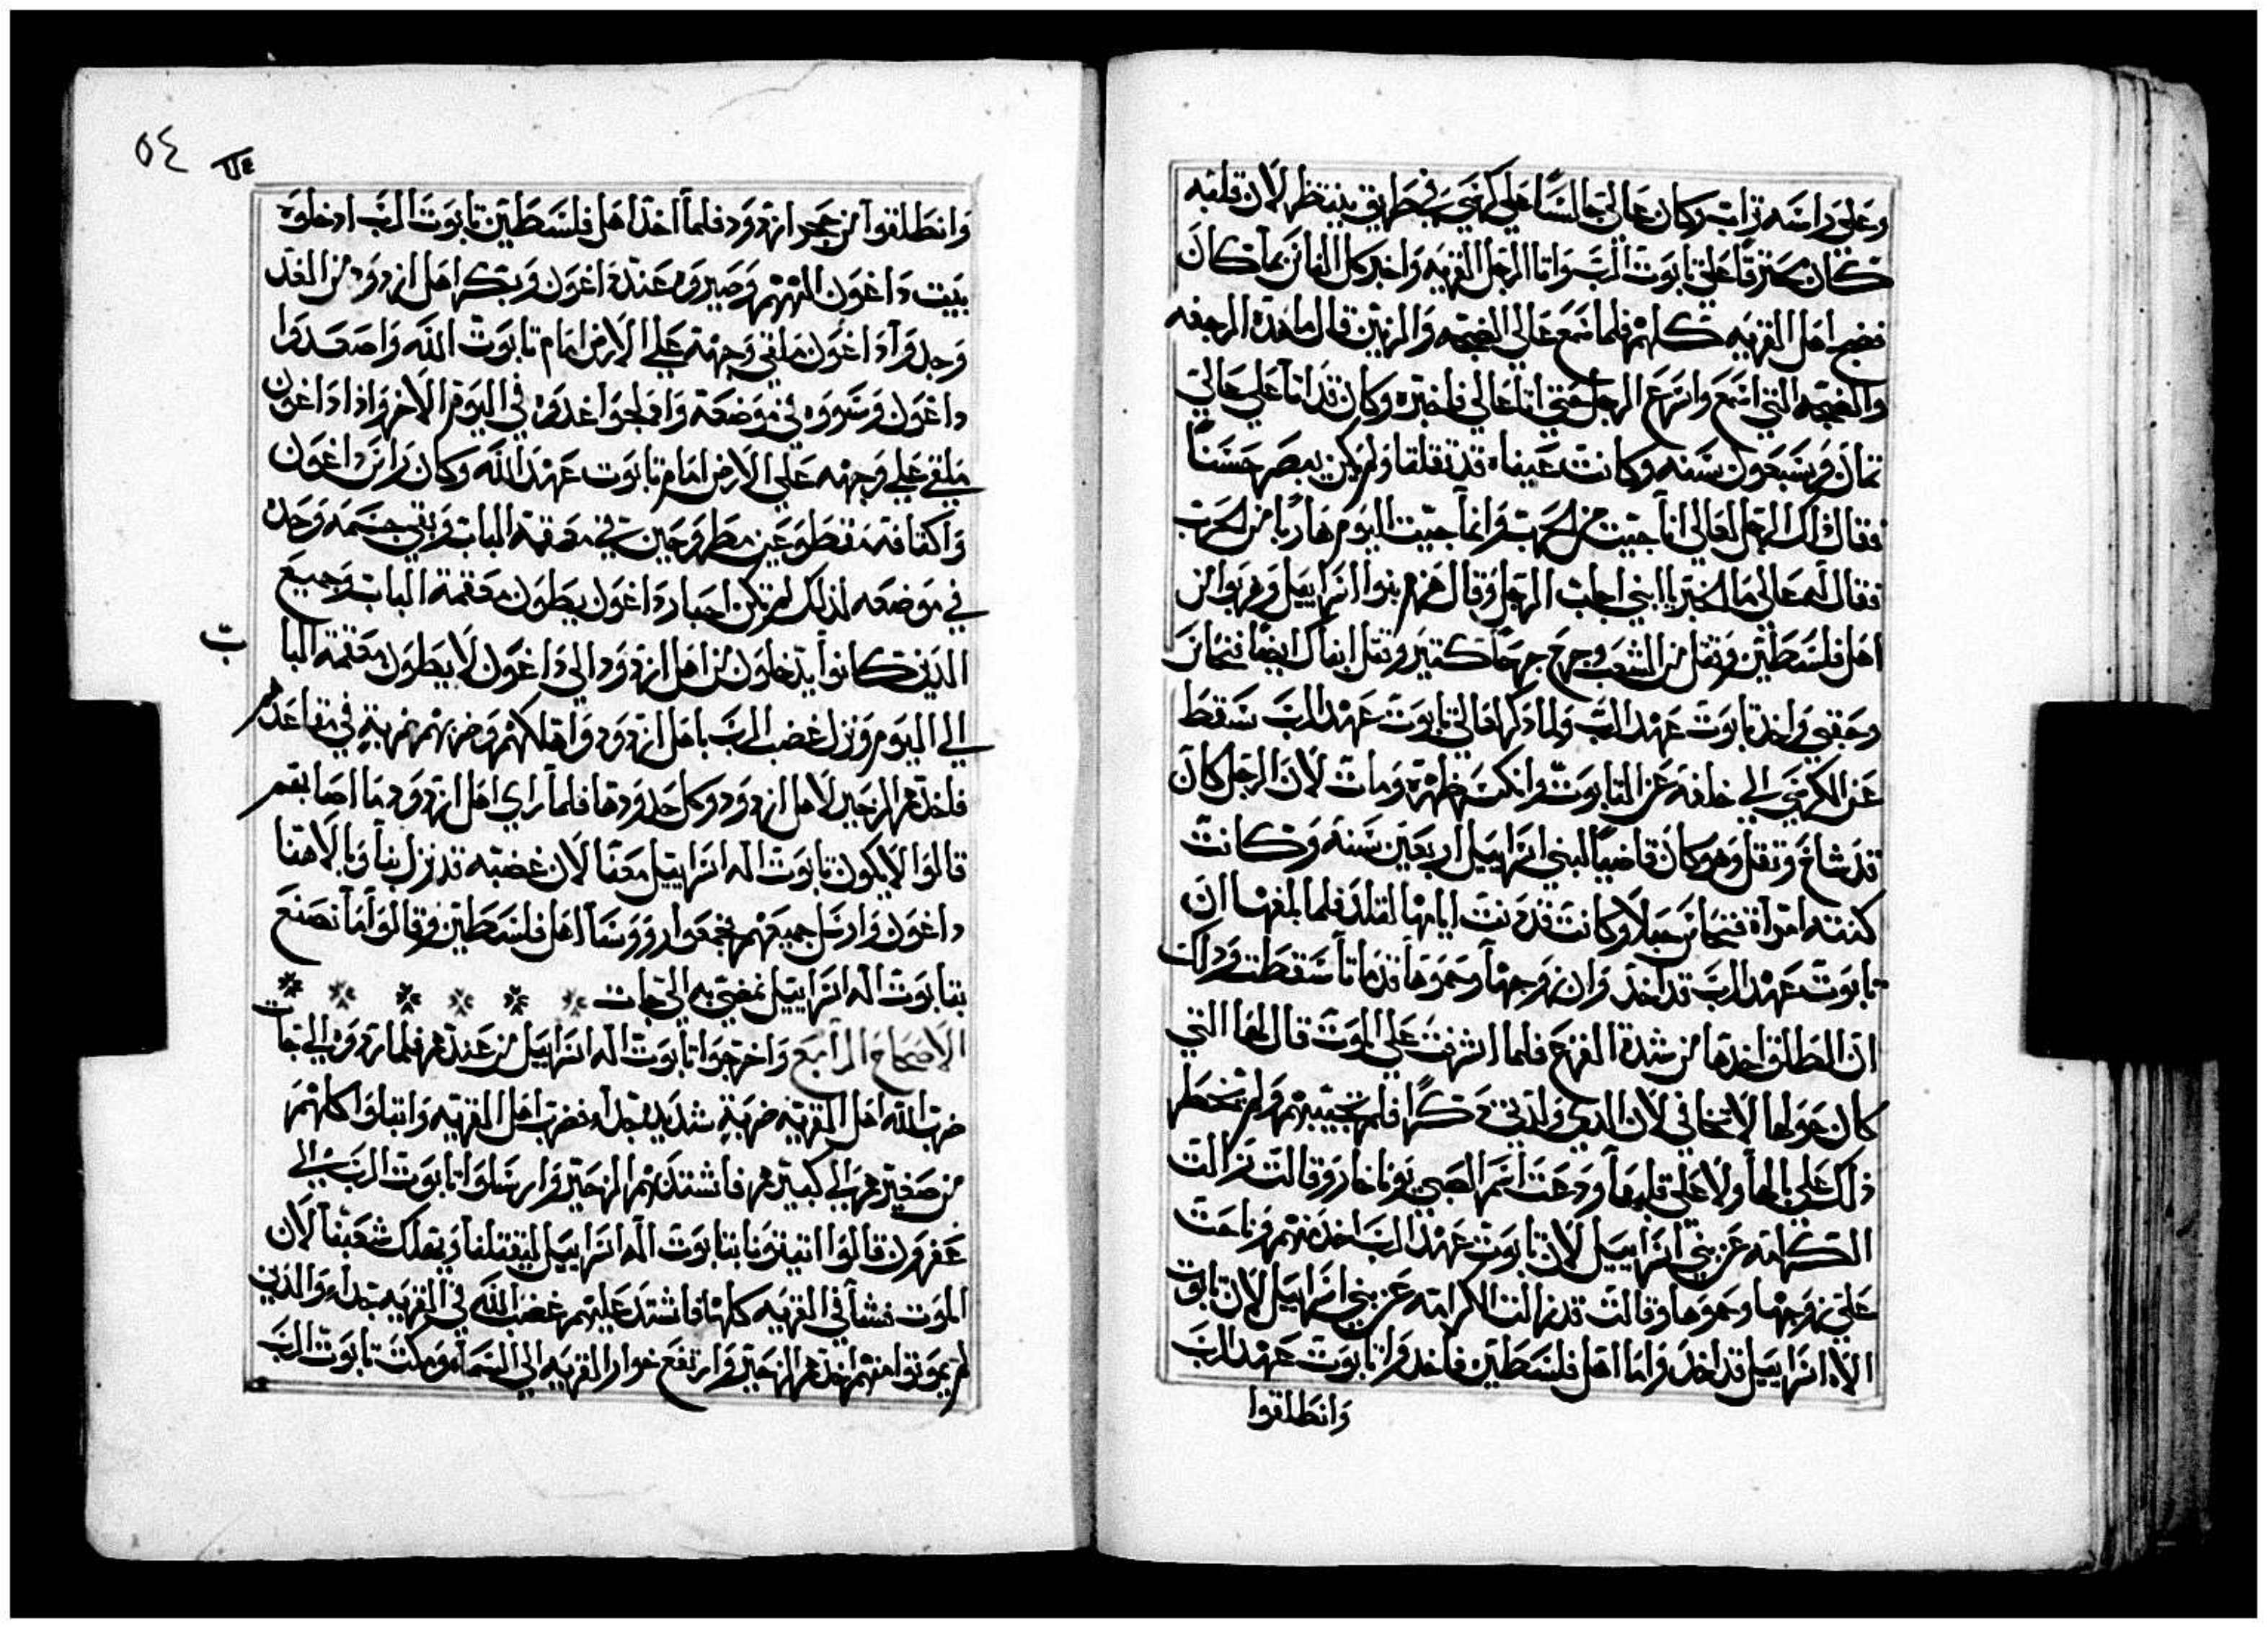 وعلي راسه تراب وكان عالي جالسًا علي كرسي في طريق ينتظر لان قلبه
كان محترقًا علي تابوت الرب واتا الرجل القريه واخبر كل الناس بما كان
فضج اهل القريه كلهم فلما سمع عالي الضجه والرنين قال ما هذه الرجفه
والضجه التي اسمع واسرع الرجل حتي اتا عالي فاخبره وكان قد اتا علي عالي
ثمان وسبعون سنه وكانت عيناه قد ثقلتا ولم يكن يبصر حسنًا
فقال ذلك الرجل لعالي انا جيت من الحرب وانما جيت اليوم هاربًا من الحرب
فقال له عالي ما الخبر يا ابني اجاب الرجل وقال هزم بنوا اسراييل وهربوا من
اهل فلسطين وقتل من الشعب وجرح جرحًا كتير وقتل ابناك ايضًا فنحاس
وحفني واخذ تابوت عهد الرب ولما ذكر لعالي تابوت عهد الرب سقط
عن الكرسي الي خلفه عن التابوت وانكسر ظهره ومات لان الرجل كان
قد شاخ وثقل وهو كان قاضيًا لبني اسراييل اربعين سنه وكانت
كنته امراة فنحاس حبلا وكانت قد دنت ايامها لتلد فلما بلغها ان
تابوت عهد الرب قد اخذ وان زوجها وحموها قد ماتا سقطت وذلك
ان الطلق اخذها من شدة الفزع فلما اشرفت علي الموت قال لها التي
كان حولها لا تخافي لان الذي ولدتي ذكرًا فلم تجيبهم ولم يخطر
ذلك علي بالها ولا علي قلبها ودعت اسم الصبي يونا خارو وقالت زالت
الكرامه عن بني اسراييل لان تابوت عهد الرب اخذ منهم وناحت
علي زوجها وحموها وقالت قد زالت الكرامه عن بني اسراييل لان تابوت
الاه اسراييل قد اخذ واما اهل فلسطين فاخذوا تابوت عهد الرب
وانطلقوا
٥٤
وانطلقوا من حجر ازدود فلما اخذ اهل فلسطين تابوت الرب ادخلوه
بيت داغون الههم وصيروه عند داغون وبكر اهل ازدود من الغد
وجدوا داغون ملقي وجهه علي الارض امام تابوت الله واصعدوا
داغون وسووه في موضعه وادلجوا غدوه في اليوم الاخر واذا داغون
ملقي علي وجهه علي الارض امام تابوت عهد الله وكان راس داغون
واكتافه مقطوعين مطروحين في معقمة الباب وبقي جسمه وحده
في موضعه لذلك لم تكن احبار داغون يطون معقمة الباب وجميع
الذين كانوا يدخلون من اهل ازدود الي داغون لا يطون معقمة البا
ب
الي اليوم ونزل غضب الرب باهل ازدود واهلكهم وضربهم ضربةٍ في مقاعدهم
فاخذهم الزحير لاهل ازدود وكل حدودها فلما راي اهل ازدود ما اصابهم
قالوا لا يكون تابوت اله اسراييل معنا لان غضبه قد نزل بنا وبالاهنا
داغون وارسل جميعهم فجمعوا رووسا اهل فلسطين وقالوا ما نصنع
بتابوت اله اسراييل نمضي به الي جات
الاصحاح الرابع واخرجوا تابوت اله اسراييل من عندهم فلما ردوه الي جات
ضرب الله اهل القريه ضربةٍ شديد جدا فضرب اهل القريه وابتلوا كلهم
من صغيرهم الي كبيرهم فاشتد بهم الزحير وارسلوا تابوت الرب الي
عفرون قالوا اتيتونا بتابوت اله اسراييل ليقتلنا ويهلك شعبنا لان
الموت فشا في القريه كلها فاشتد عليهم غضب الله في القريه جدا والذين
لم يموتوا منهم اخذهم الزحير وارتفع خوار القريه الي السماء ومكث تابوت الرب